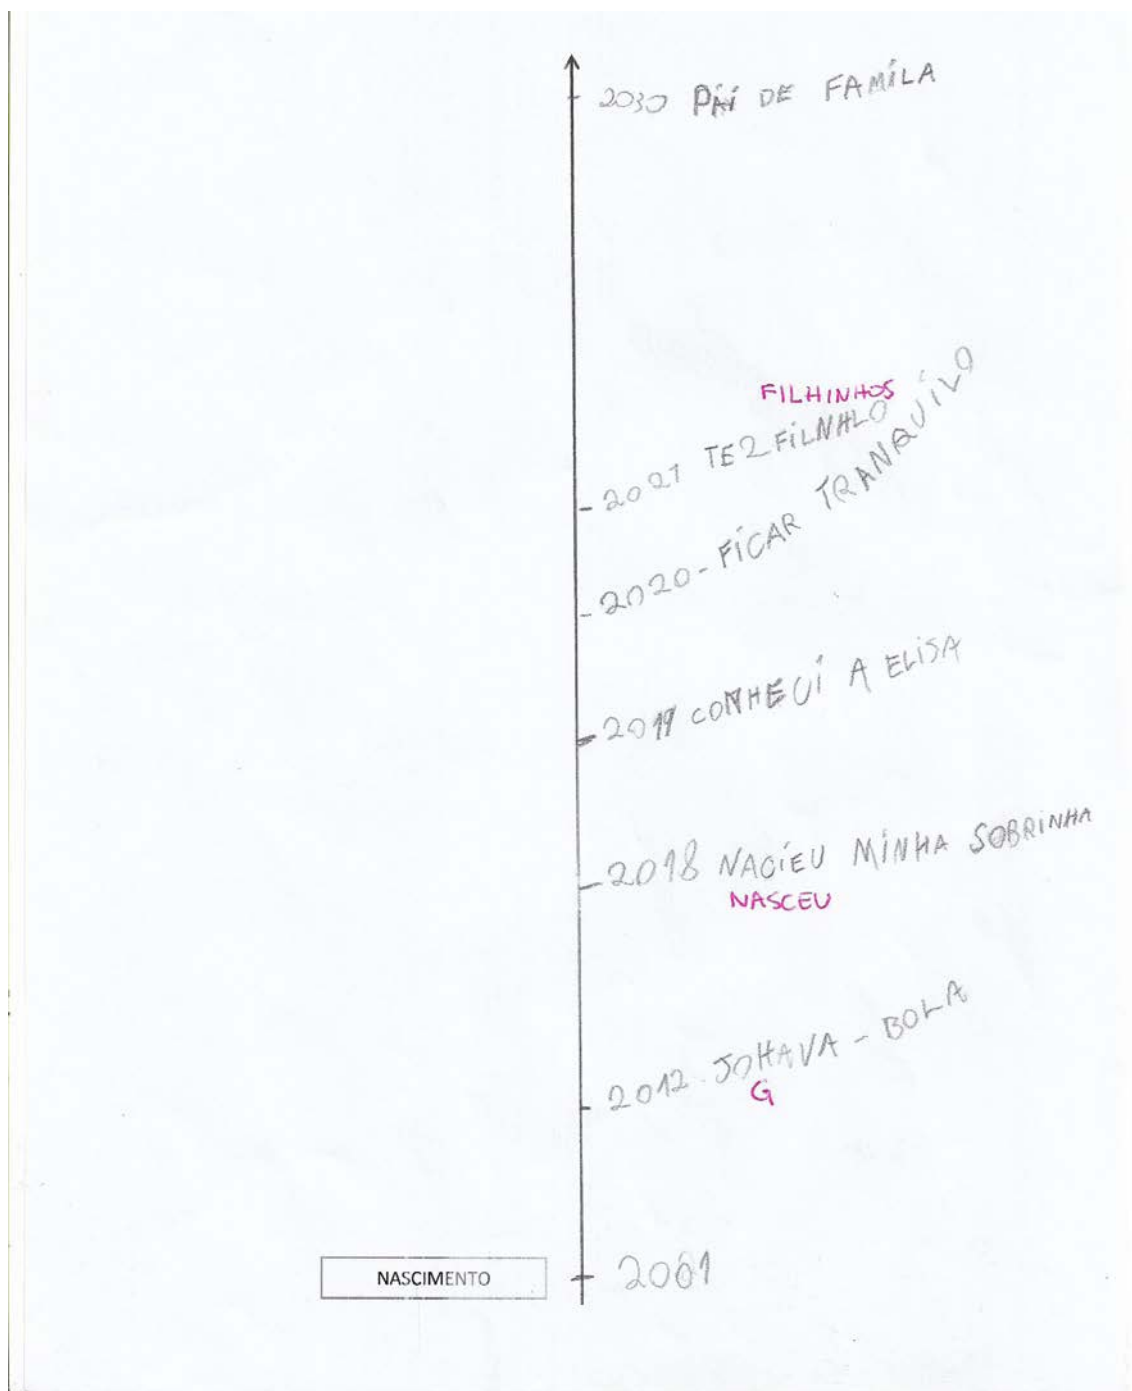 2030 PAI DE FAMÍLA
FILHINHOS
2021 TER FILNHLO
2020 - FICAR TRANQUILO
2019 CONHECI A ELISA
2018 NACIEU MINHA SOBRINHA
NASCEU
2012 - JOHAVA - BOLA
G
NASCIMENTO 2001